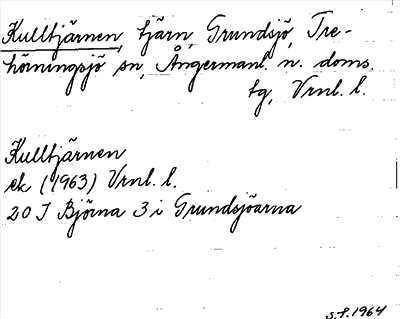 Kulltjärnen, tjärn, Grundsjö, Tre-
hörningsjö sn, Ångermanl. n. doms.
tg, Vrnl. l.
Kulltjärnen
ek (1963) Vrnl. l.
20 I Björna 3 i Grundsjöarna
S.F. 1964